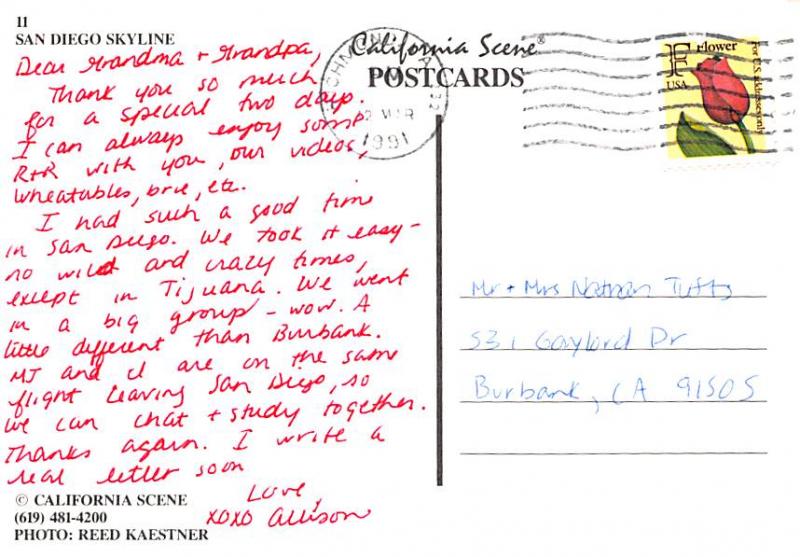 11
SAN DIEGO SKYLINE
Dear Grandma + Grandpa,
Thank you so much
for a special two days.
I can always enjoy some
R+R with you, our videos,
wheatables, brie, etc.
I had such a good time
in San Diego. We took it easy -
no wild and crazy times,
except in Tijuana. We went
in a big group - wow. A
little different than Burbank.
MJ and I are on the same
flight leaving San Diego, so
we can chat + study together.
Thanks again. I write a
real letter soon
Love,
XOXO Allison
© CALIFORNIA SCENE
(619) 481-4200
PHOTO: REED KAESTNER
California Scene®
POSTCARDS
MAR
1991
F Flower
USA
For U.S. addresses only
Mr + Mrs Nathan Tufts
531 Gaylord Dr
Burbank, CA 91505